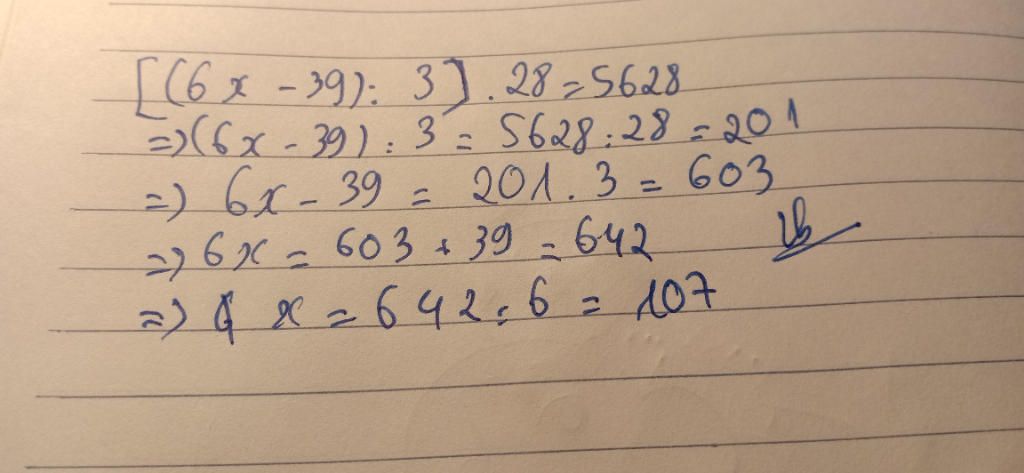 [(6x - 39) : 3] . 28 = 5628
=> (6x - 39) : 3 = 5628 : 28 = 201
=> 6x - 39 = 201 . 3 = 603
=> 6x = 603 + 39 = 642
=> x = 642 : 6 = 107